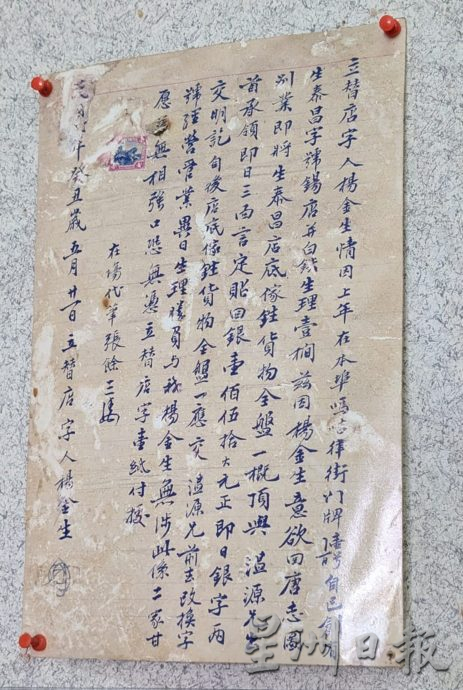 立替店字人楊金生情因上年在本埠嗎吉律街門牌自己創
生泰昌字號錫店并白鉄生理壹間茲因楊金生意欲回唐志圖
別業即將生泰昌店底傢鉎貨物全盤一概頂與溢源兄
首承領即日三面言定貼回銀壹佰伍拾大元正即日銀字兩
交明記旬後店底傢鉎貨物全盤一應交溢源兄前去改換字
號經營管業異日生理勝負与我楊金生無涉此係二家甘
愿無相強口恐無憑立替店字壹紙付授
在場代筆張餘三
年癸丑歲五月廿一日立替店字人楊金生
星洲日報